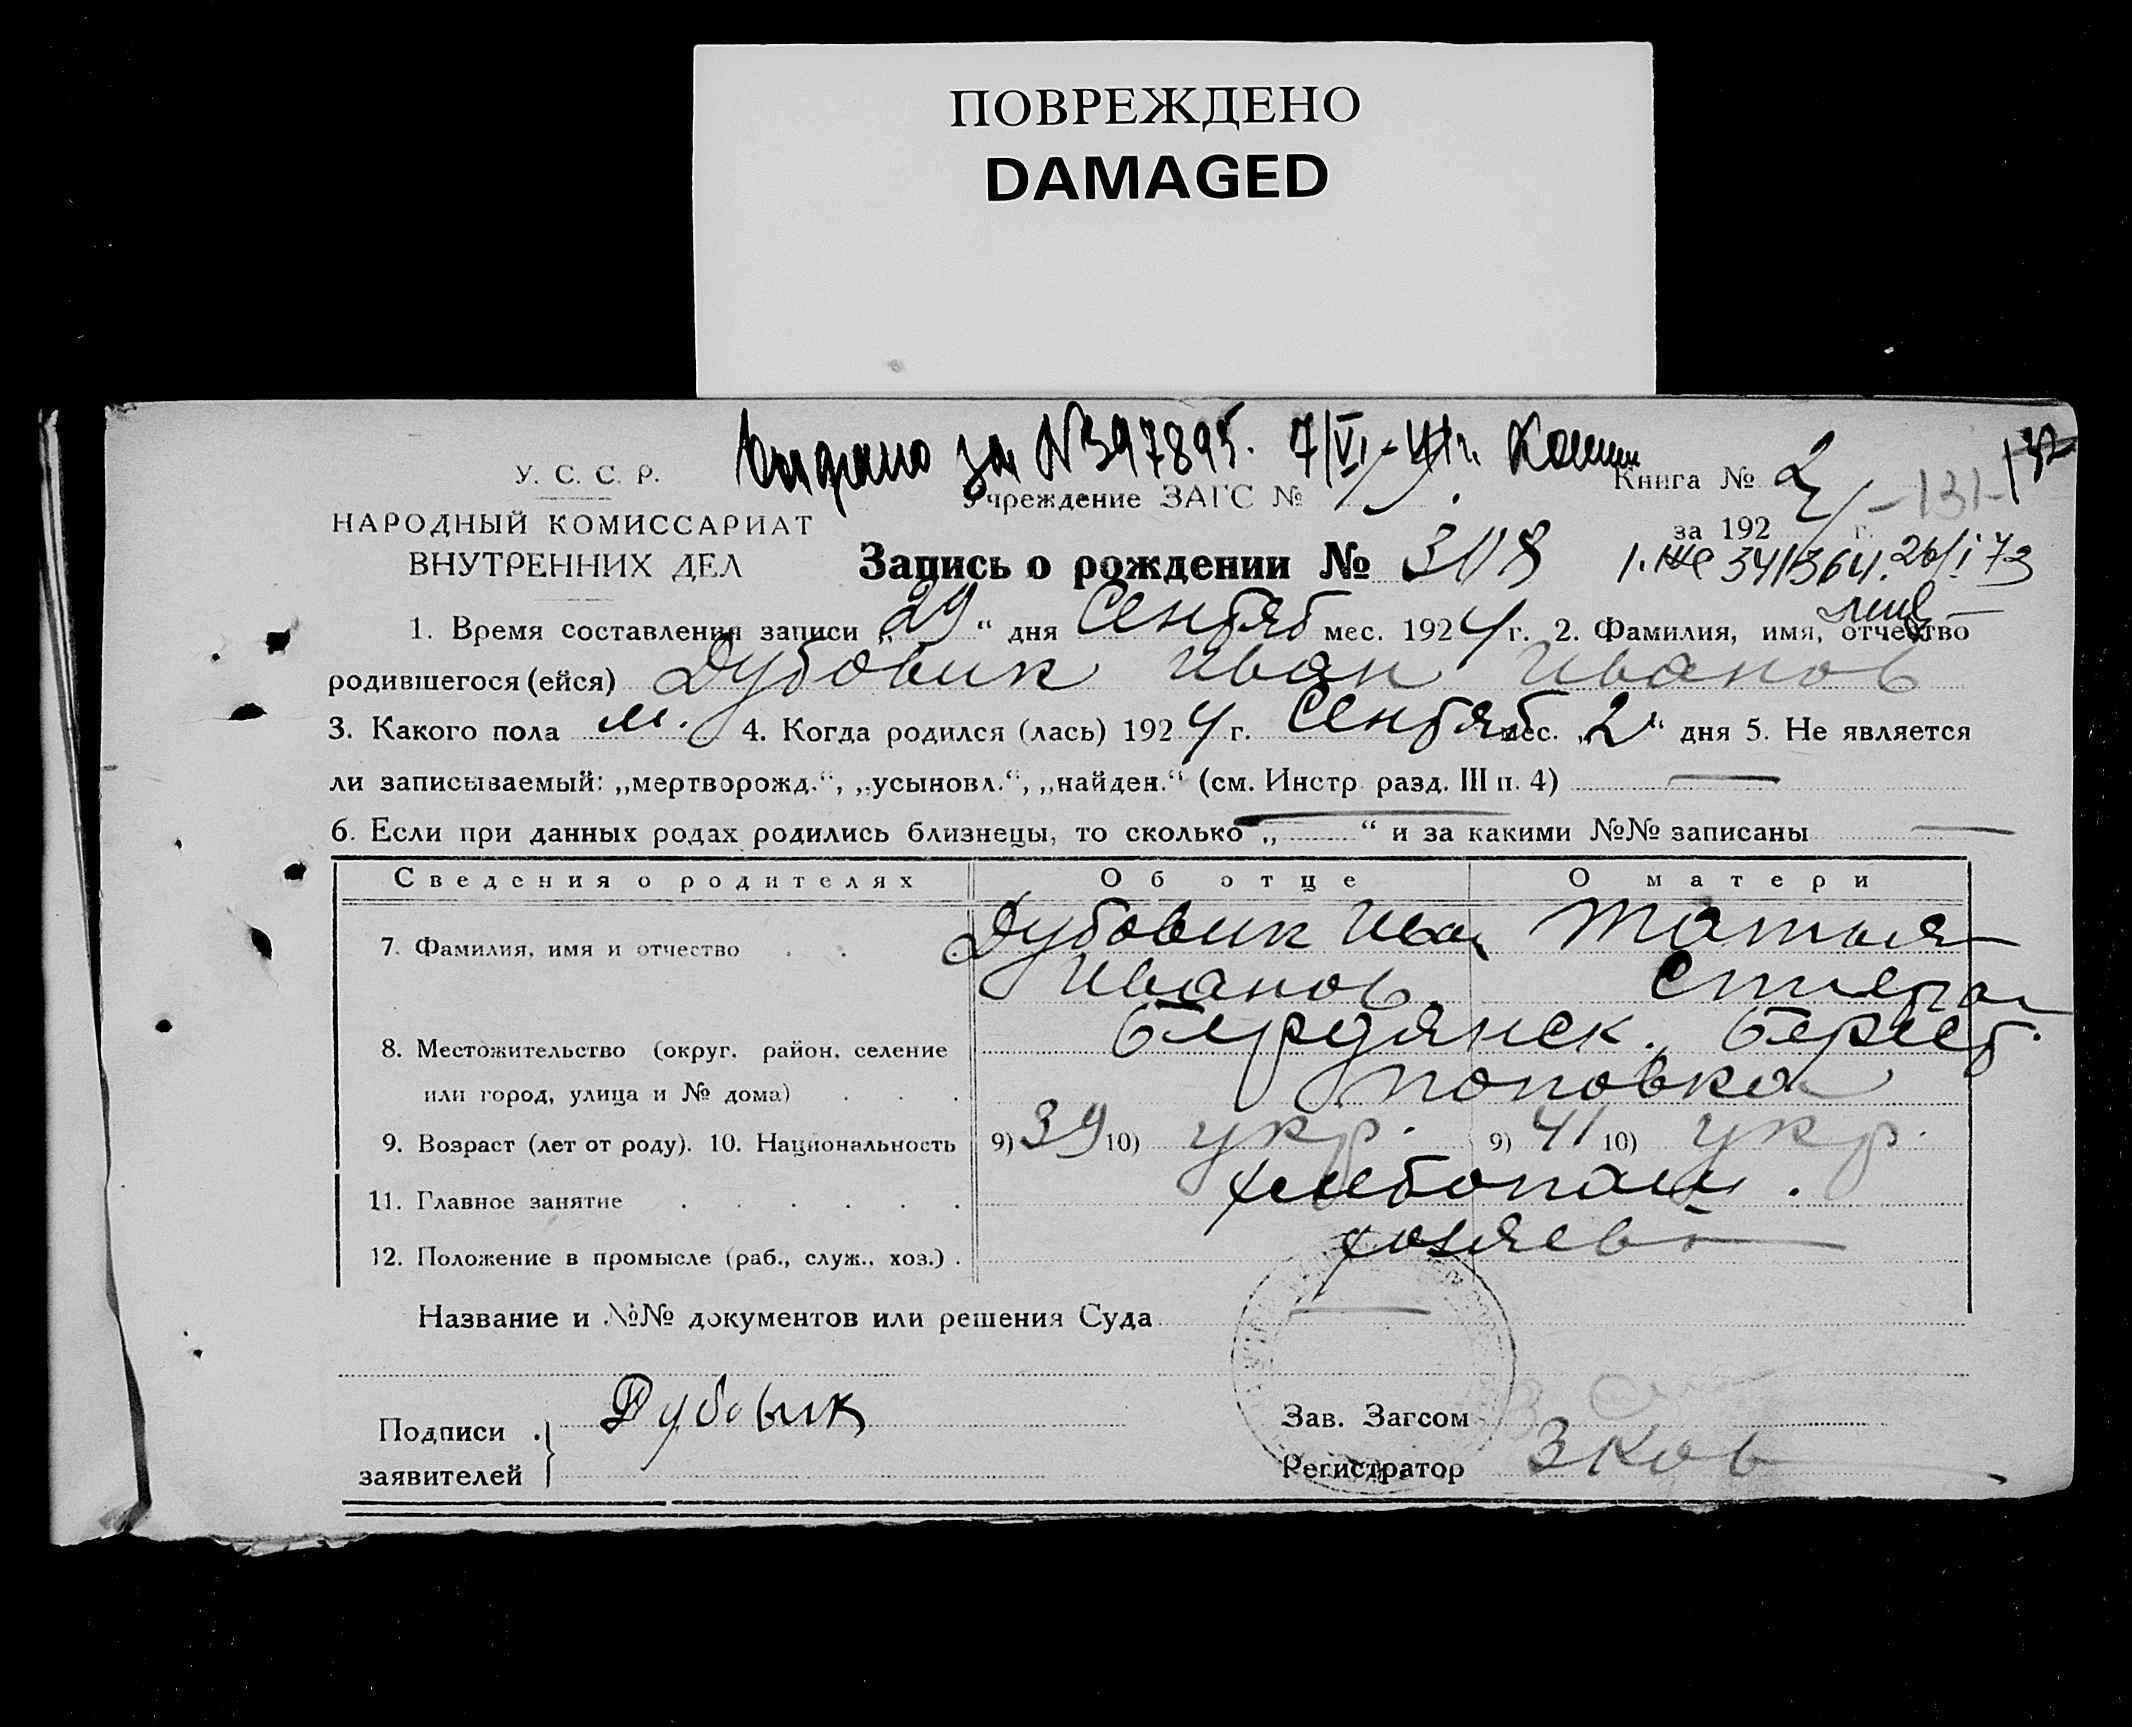 ПОВРЕЖДЕНО
DAMAGED
Выдано за №397895. 7/VI-41г.
У. С. С. Р.
Учреждение ЗАГС №
Книга № 2
-131-
132
НАРОДНЫЙ КОМИССАРИАТ
за 1924 г.
ВНУТРЕННИХ ДЕЛ
Запись о рождении № 308
341364. 26/I 73
1. Время составления записи „29“ дня Сентяб мес. 1924 г. 2. Фамилия, имя, отчество
родившегося (ейся) Дубовик Иван Иванов
3. Какого пола м. 4. Когда родился (лась) 1924 г. Сентяб мес. „2“ дня 5. Не является
ли записываемый: „мертворожд.“, „усыновл.“, „найден.“ (см. Инстр. разд. III п. 4) —
6. Если при данных родах родились близнецы, то сколько „—“ и за какими №№ записаны —
Сведения о родителях Об отце О матери
7. Фамилия, имя и отчество Дубовик Иван Татьяна
Иванов. Степан
8. Местожительство (округ, район, селение Бердянск. Берест.
или город, улица и № дома) Поповка
9. Возраст (лет от роду). 10. Национальность 9) 39 10) укр. 9) 41 10) укр.
11. Главное занятие хлебопаш.
12. Положение в промысле (раб., служ., хоз.) хозяева
Название и №№ документов или решения Суда —
Подписи Дубовик
заявителей
Зав. Загсом
Регистратор